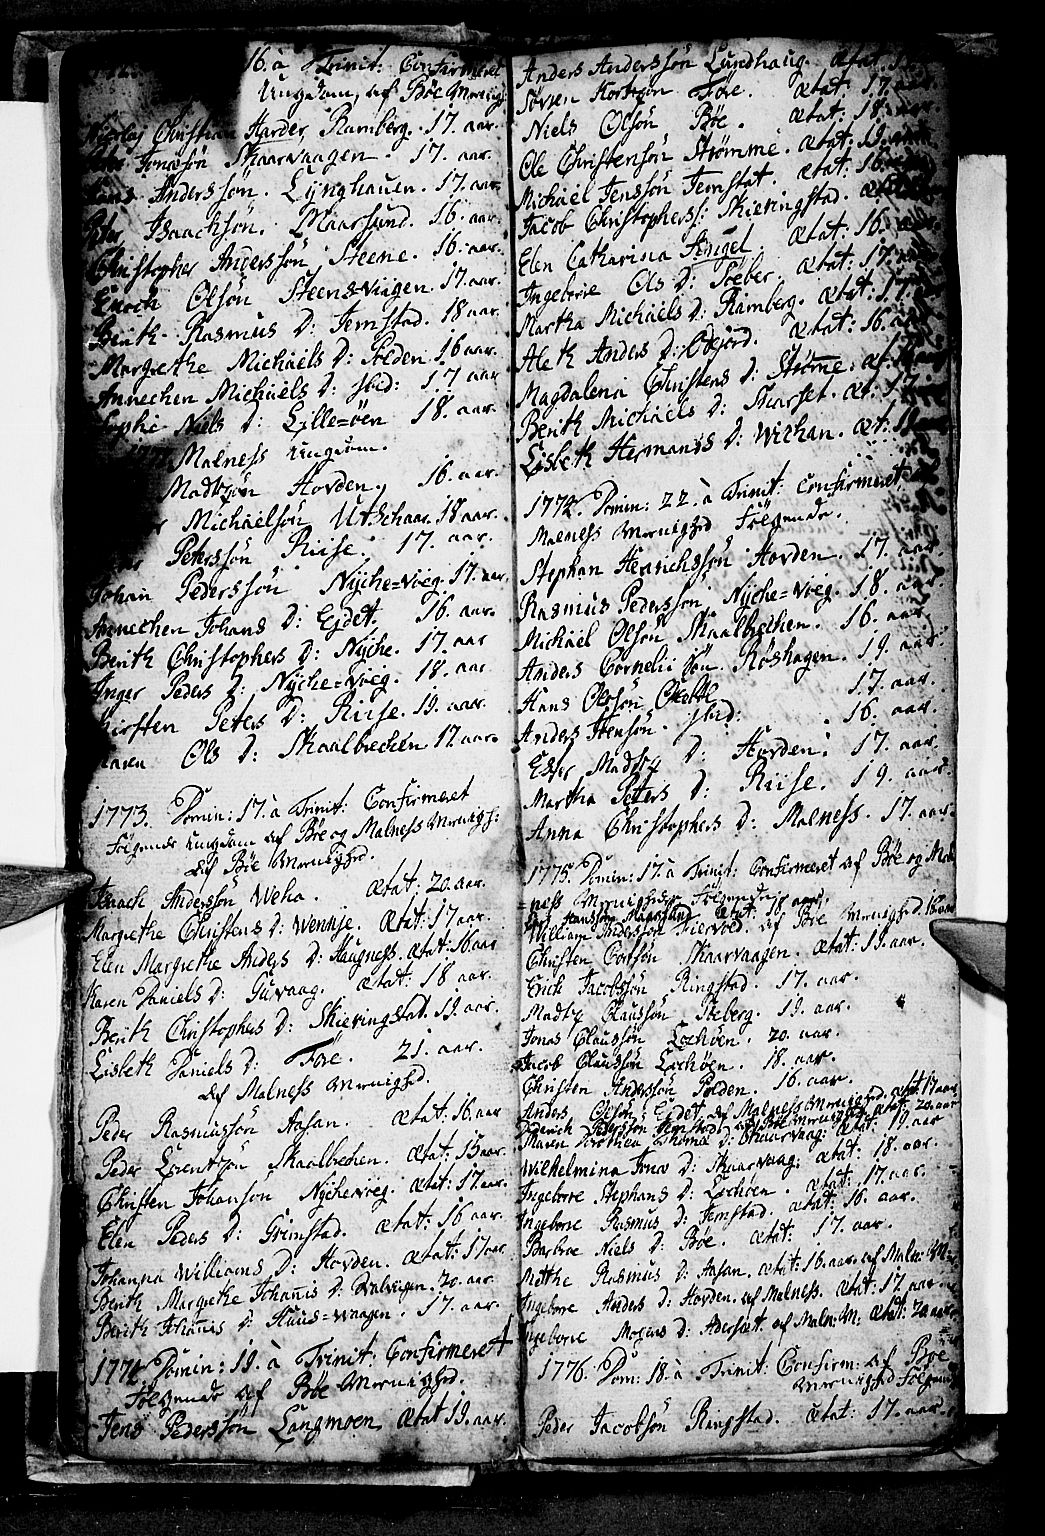 16. à Trinit: Confirmeret
Ungdom, af Böe Menigh
Christian Harder Ramberg. 17. aar.
Jonasön Skaarvaagen. 17. aar.
Hans Anderssön. Lynghauen. 17. aar.
Peter Isaachsön. Maarsund. 16. aar.
Christopher Anderssön Steene. 16. aar.
Enoch Olsön Steens-vaagen. 17. aar.
Berith Rasmus D: Jemstad. 18 aar.
Margrethe Michaels D: Polden. 16 aar.
Annechen Michaels D: ibid: 17 aar
Sophie Niels D: Lille=öen 18. aar.
Malness Ungdom.
Madtzön Hovden, 16. aar.
Michaelsön Utschaar. 18 aar.
Peterssön Riise. 17. aar.
Johan Pederssön Nyche=Voeg. 17. aar.
Annechen Johans D: Eydet, 16. aar.
Berith Christophers D: Nyche. 17. aar
Inger Peders D: Nyche=Voeg. 18. aar
Kirsten Peters D: Riise. 19. aar.
Maren Ols D: Skaalbrechen 17. aar.
1773. Domin: 17. à Trinit: Confirmeret
Fölgende Ungdom af Böe og Malness Menigh:
Af Böe Menighed.
Isaach Anderssön Weha. Ætat: 20. aar.
Margrethe Christens D: Wennje. Ætat: 17 aar.
Elen Margrethe Anders D: Haugness. ætat: 16 aar
Karen Daniels D: Guvaag. Ætat: 18 aar.
Berith Christophers D: Skieringstad. 19. aar.
Lisbeth Daniels D: Före. 21. aar.
Af Malness Menighed.
Peder Rasmussön Aasan. Ætat: 16. aar
Peder Lorentzön Skaalbrechen. Ætat: 15 aar.
Christen Johanson Nychevoeg. Ætat: 17. aar.
Elen Peders D: Grimstad. Ætat: 16 aar.
Johanna Williams D: Hovden. Ætat: 17 aar
Berith Margrethe Johannis D: 20. aar.
Berith Johannis D: Huus=vaagen. 17. aar.
1774. Domin: 19. à Trinit: Confirmeret
Fölgende af Böe Menighed.
Jens Pederssön Langmoen Ætat 19. aar.
Anders Anderssön Lundhaug. Ætat.
Sörren Före. Ætat: 17. aar.
Niels Olsön Böe. Ætat: 18. aar.
Ole Christensön Strømme. Ætat: 19. aar.
Michael Jenssön Jemstat. Ætat: 16.
Jacob Christophers: Skieringstad.
Elen Catharina Angel. Ætat: 16.
Ingeborre Ols D: Ætat: 17.
Martha Michaels D: Ramberg. Ætat: 17.
Aleth Anders D: Ætat: 16.
Magdalena Christens D: Strømme.
Berith Michaels D: Skarset. Æt: 17.
Lisbeth Hermans D: Withan. Æt:
1774. Domin: 22. à Trinit: Confirmeret
Malness Menighed Fölgende.
Stephan Henrichssön Hovden. 17. aar.
Rasmus Pederssön Nyche=Voeg. 18. aar.
Michael Olsön Skaalbrechen. 16. aar.
Anders Cornelii Sön. Röshagen. 19. aar.
Hans Olesön 17. aar.
Anders ibid: 16. aar.
Ester Madtz D: Hovden: 17. aar.
Martha Peters D: Riise. 19. aar.
Anna Christophers D: Malness. 17. aar.
1775. Domin: 17. à Trinit: Confirmeret af Böe og Mal
ness Menigheder Fölgende
Hanssön Maarsund. Ætat: aar.
William Anderssön Fierevold. af Böe Menighed. 18. aar
Christen Skaarvaagen. Ætat: 19. aar.
Erich Jacobssön Ringstad. 17. aar.
Madtz Claussön 19. aar.
Jonas Claussön Lochöen. 20. aar.
Jacob Claussön Lochöen. 18. aar.
Christen Anderssön Polden. 16. aar.
Anders Olsön: Eydet, af Malness Menighed, ætat. 17 aar.
Diderich Pederssön Jemstad af Böe Menighed ætat. 20. aar
Maren Dorothea Thomæ D: Skaarvaag: Ætat: 19. aar
Wilhelmina D: Skaarvaag. Ætat: 18. aar.
Ingeborre Stephans D: Lochöen. Ætat: 17. aar.
Ingeborre Rasmus D: Jemstad. Ætat: 16. aar.
Barbroe Niels D: Böe. Ætat: 17. aar.
Methe Rasmus D: Aasan. Ætat: 16. aar. af Maln: M:
Ingeborre Anders D: Hovden. af Malness. Ætat: 17. aar.
Ingeborre Mogens D: af Maln: M: Ætat: 20 aar
1776. Dom: 18. à Trinit: Confirm: af Böe
Menighed Fölgende
Peder Jacobsön Ringstad. Ætat: 17. aar.